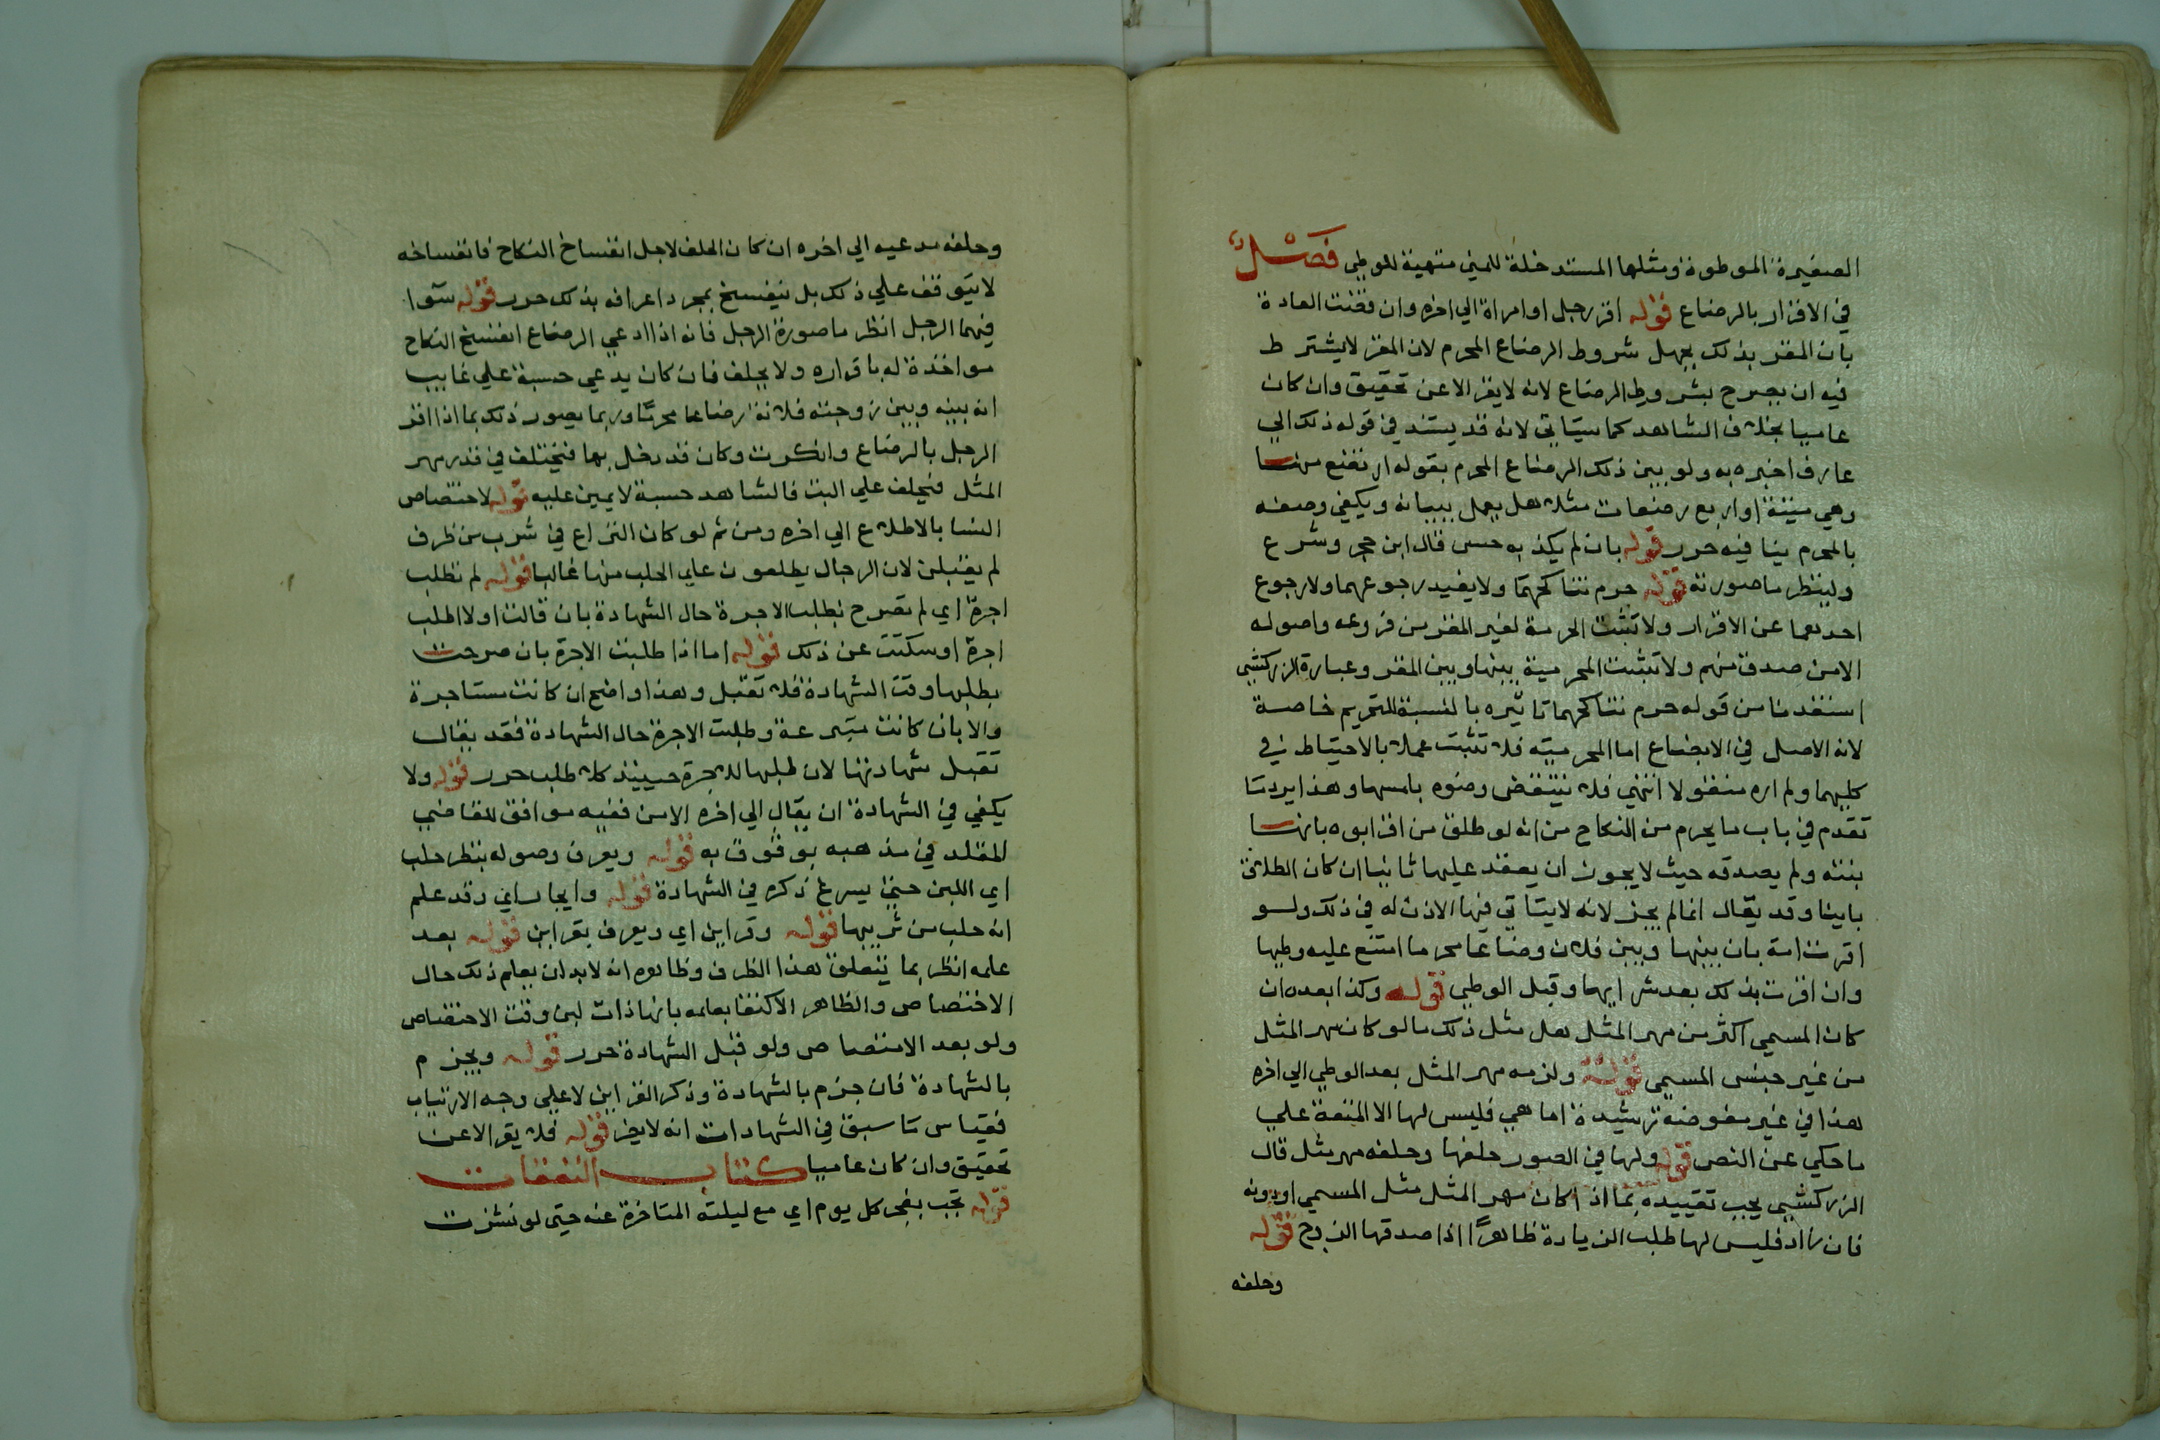 الصغيرة الموطوة ومثلها المستدخلة للمني متهية للوطي فصل
في الاقرار بالرضاع قوله اقر رجل او امراة الي اخره وان قضت العادة
بان المقر بذلك يجهل شروط الرضاع المحرم لان المقر لا يشترط
فيه ان يصرح بشروط الرضاع لانه لا يقر الا عن تحقيق وان كان
عاميا بخلاف الشاهد كما سياتي لانه قد يستند في قوله ذلك الي
عارف اخبره به ولو بين ذلك الرضاع المحرم بقوله ارتضع منها
وهي ميتة او اربع رضعات مثلا هل يعمل ببيانه ويكفي وصفه
بالمحرم ينا فيه حرر قوله بان لم يكذبه حس قال ابن حجر وشرع
ولينظر ما صورته قوله حرم تناكحهما ولا يفيد رجوعهما ولا رجوع
احدهما عن الاقرار ولا تثبت الحرمة لغير المقر من فروعه واصوله
الا من صدق منهم ولا تثبت المحرمية بينها وبين المقر وعبارة الزركشي
استفدنا من قوله حرم تناكحهما تاثيره بالنسبة للتحريم خاصة
لانه الاصل في الابضاع اما المحرمية فلا تثبت عملا بالاحتياط في
كليهما ولم اره منقولا انتهي فلا ينتقض وضوه بلمسها وهذا يرد ما
تقدم في باب ما يحرم من النكاح من انه لو طلق من اقر ابوه بانها
بنته ولم يصدقه حيث لا يجوز ان يعقد عليها ثانيا ان كان الطلاق
باينا وقد يقال انما لم يجز لانه لا يتاتي فيها الاذن له في ذلك ولو
اقرت امة بان بينها وبين فلان رضاعا محرما امتنع عليه وطيها
وان اقرت بذلك بعد شرايها وقبل الوطي قوله وكذا بعده ان
كان المسمي اكثر من مهر المثل هل مثل ذلك ما لو كان مهر المثل
من غير جنس المسمي قوله ولزمه مهر المثل بعد الوطي الي اخره
هذا في غير مفوضة رشيدة اما هي فليس لها الا المتعة علي
ما حكي عن النص قوله ولها في الصور حلفها وحلفه مهر مثل قال
الزركشي يجب تقييده بما اذا كان مهر المثل مثل المسمي او دونه
فان زاد فليس لها طلب الزيادة ظاهرا اذا صدقها الزوج قوله
وحلفه
وحلفه مدعيه الي اخره ان كان الحلف لاجل انفساخ النكاح فانفساخه
لا يتوقف علي ذلك بل ينفسخ بمجرد اعترافه بذلك حرر قوله سوا
فيهما الرجل انظر ما صورة الرجل فانه اذا ادعي الرضاع انفسخ النكاح
مواخذة له باقراره ولا يحلف فان كان يدعي حسبة علي غايب
انه بينه وبين زوجته فلانة رضاعا محرما وربما يصور ذلك بما اذا اقر
الرجل بالرضاع وانكرت وكان قد دخل بها فيختلف في قدر مهر
المثل فيحلف علي البت فالشاهد حسبة لا يمين عليه قوله لاختصاص
النسا بالاطلاع الي اخره ومن ثم لو كان النزاع في شرب من ظرف
لم يقبلن لان الرجال يطلعون علي الحلب منها غالبا قوله لم تطلب
اجرة اي لم تصرح بطلب الاجرة حال الشهادة بان قالت اولا اطلب
اجرة او سكتت عن ذلك قوله اما اذا طلبت الاجرة بان صرحت
بطلبها وقت الشهادة فلا تقبل وهذا واضح ان كانت مستاجرة
والا بان كانت متبرعة وطلبت الاجرة حال الشهادة فقد يقال
تقبل شهادتها لان طلبها للاجرة حينيذ كلا طلب حرر قوله ولا
يكفي في الشهادة ان يقال الي اخره الا من فقيه موافق للقاضي
المقلد في مذهبه يوثوق به قوله ويعرف وصوله بنظر حلب
اي اللبن حتي يسرع ذكره في الشهادة قوله وايجار اي وقد علم
انه حلب من ثدييها قوله وقراين اي ويعرف بقراين قوله بعد
علمه انظر بما يتعلق هذا الظرف وظاهره انه لا بد ان يعلم ذلك حال
الاختصاص والظاهر الاكتفا بعلمه بانها ذات لبن وقت الاختصاص
ولو بعد الامتصاص ولو قبل الشهادة حرر قوله ويجزم
بالشهادة فان جزم بالشهادة وذكر القراين لا علي وجه الارتياب
فقياس ما سبق في الشهادات انه لا يضر قوله فلا يقر الا عن
تحقيق وان كان عاميا كتاب النفقات
قوله تجب بفجر كل يوم اي مع ليلته المتاخرة عنه حتي لو نشزت